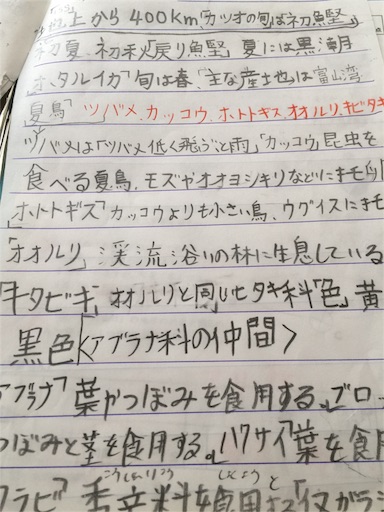 地上から400Km「カツオの旬は初鰹」
初夏、初秋「戻り鰹」夏には黒潮
ホタルイカ「旬は春」「主な産地」は富山湾
夏鳥「ツバメ、カッコウ、ホトトギス、オオルリ、キビタキ
ツバメは「ツバメ低く飛ぶと雨」「カッコウ」昆虫を
食べる夏鳥、モズやオオヨシキリなどに
ホトトギス「カッコウよりも小さい鳥、ウグイスに
「オオルリ」渓流沿いの林に生息している
「キタビキ」オオルリと同じヒタキ科「色」黄
黒色 <アブラナ科の仲間>
アブラナ「葉やつぼみを食用する。」ブロ
つぼみと茎を食用する。」ハクサイ「葉を食用
ワラビ こうしんりょう しょくよう
香辛料を食用する「